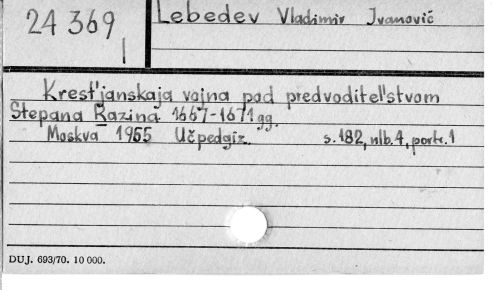 24 369
I
Lebedev Vladimir Ivanovič
Krest'janskaja vojna pod predvoditel'stvom
Stepana Razina 1667-1671 gg.
Moskva 1955 Učpedgiz s. 182, nlb. 4, portr. 1
DUJ. 693/70. 10 000.